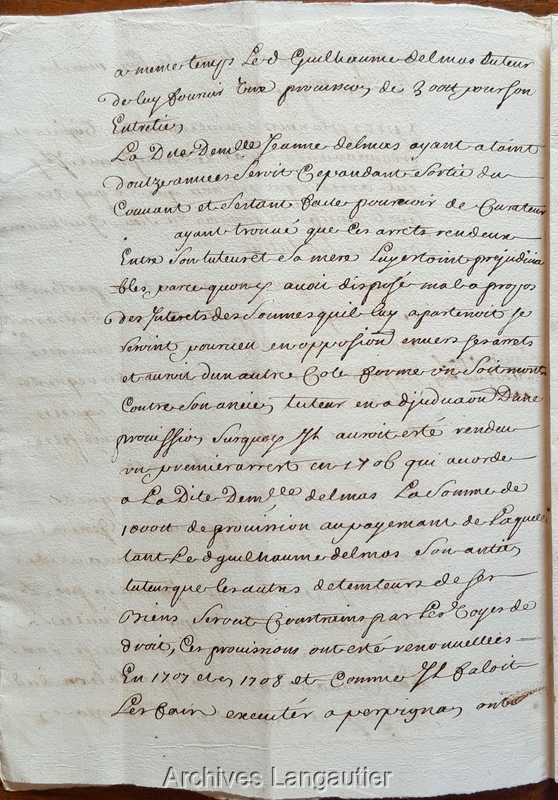 a meme temps Le d Guilhaume delmas tuteur
de luy fournir une provision de 300tt pour son
Entretien
La Dite Demlle Jeanne delmas ayant ataint
doutze années seroit cepandant sortie du
Couvant et sestant faite pourvoir de Curateur
ayant trouvé que ces arrets rendeux
Entre son tuteur et sa mere Luy estoint prejudicia
bles, parce quon y avoit disposé mal a propos
des Interets des sommes quil luy apartenoit se
seroint pourveu en opposion envers ses arrets
et auroit dun autre Cote formé un soit montré
Contre son ancien tuteur en adjudicaon Dune
provission surquoy Il auroit esté rendeu
un premier arrest en 1706 qui acorde
a La Dite Demlle delmas La somme de
1000tt de provission au payemant de Laquelle
tant Le d guilhaume delmas son antien
tuteur que les autres detemteurs de ses
Biens seront Contrains par Les Voyes de
droit, Ces provissions ont esté renouvellées
En 1707 et en 1708 et Comme Il faloit
Les fair executér a perpignan ont
Archives Langautier